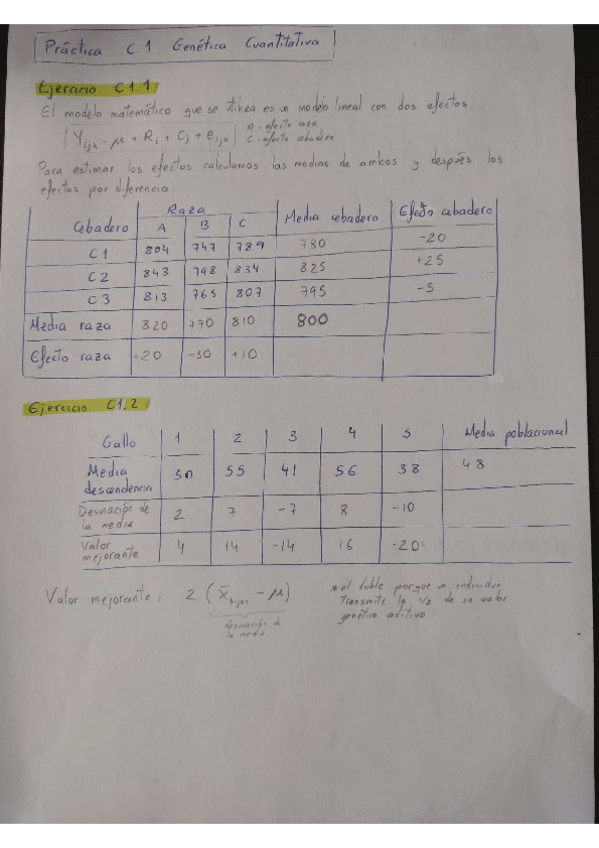 Práctica C1. Genética Cuantitativa
Ejercicio C1.1
El modelo matemático que se utiliza es un modelo lineal con dos efectos:
Yijk = μ + Ri + Cj + eijk R = efecto raza
C = efecto cebadero
Para estimar los efectos calculamos las medias de ambos y después los
efectos por diferencia:
Raza
Cebadero A B C Media cebadero Efecto cebadero
C1 804 747 789 780 -20
C2 843 798 834 825 +25
C3 813 765 807 795 -5
Media raza 820 770 810 800
Efecto raza +20 -30 +10
Ejercicio C1.2
Gallo 1 2 3 4 5 Media poblacional
Media descendencia 50 55 41 56 38 48
Desviación de la media 2 7 -7 8 -10
Valor mejorante 4 14 -14 16 -20
Valor mejorante: 2 (x̄hijos - μ) * el doble porque un individuo
transmite la 1/2 de su valor
genético aditivo
desviación de
la media